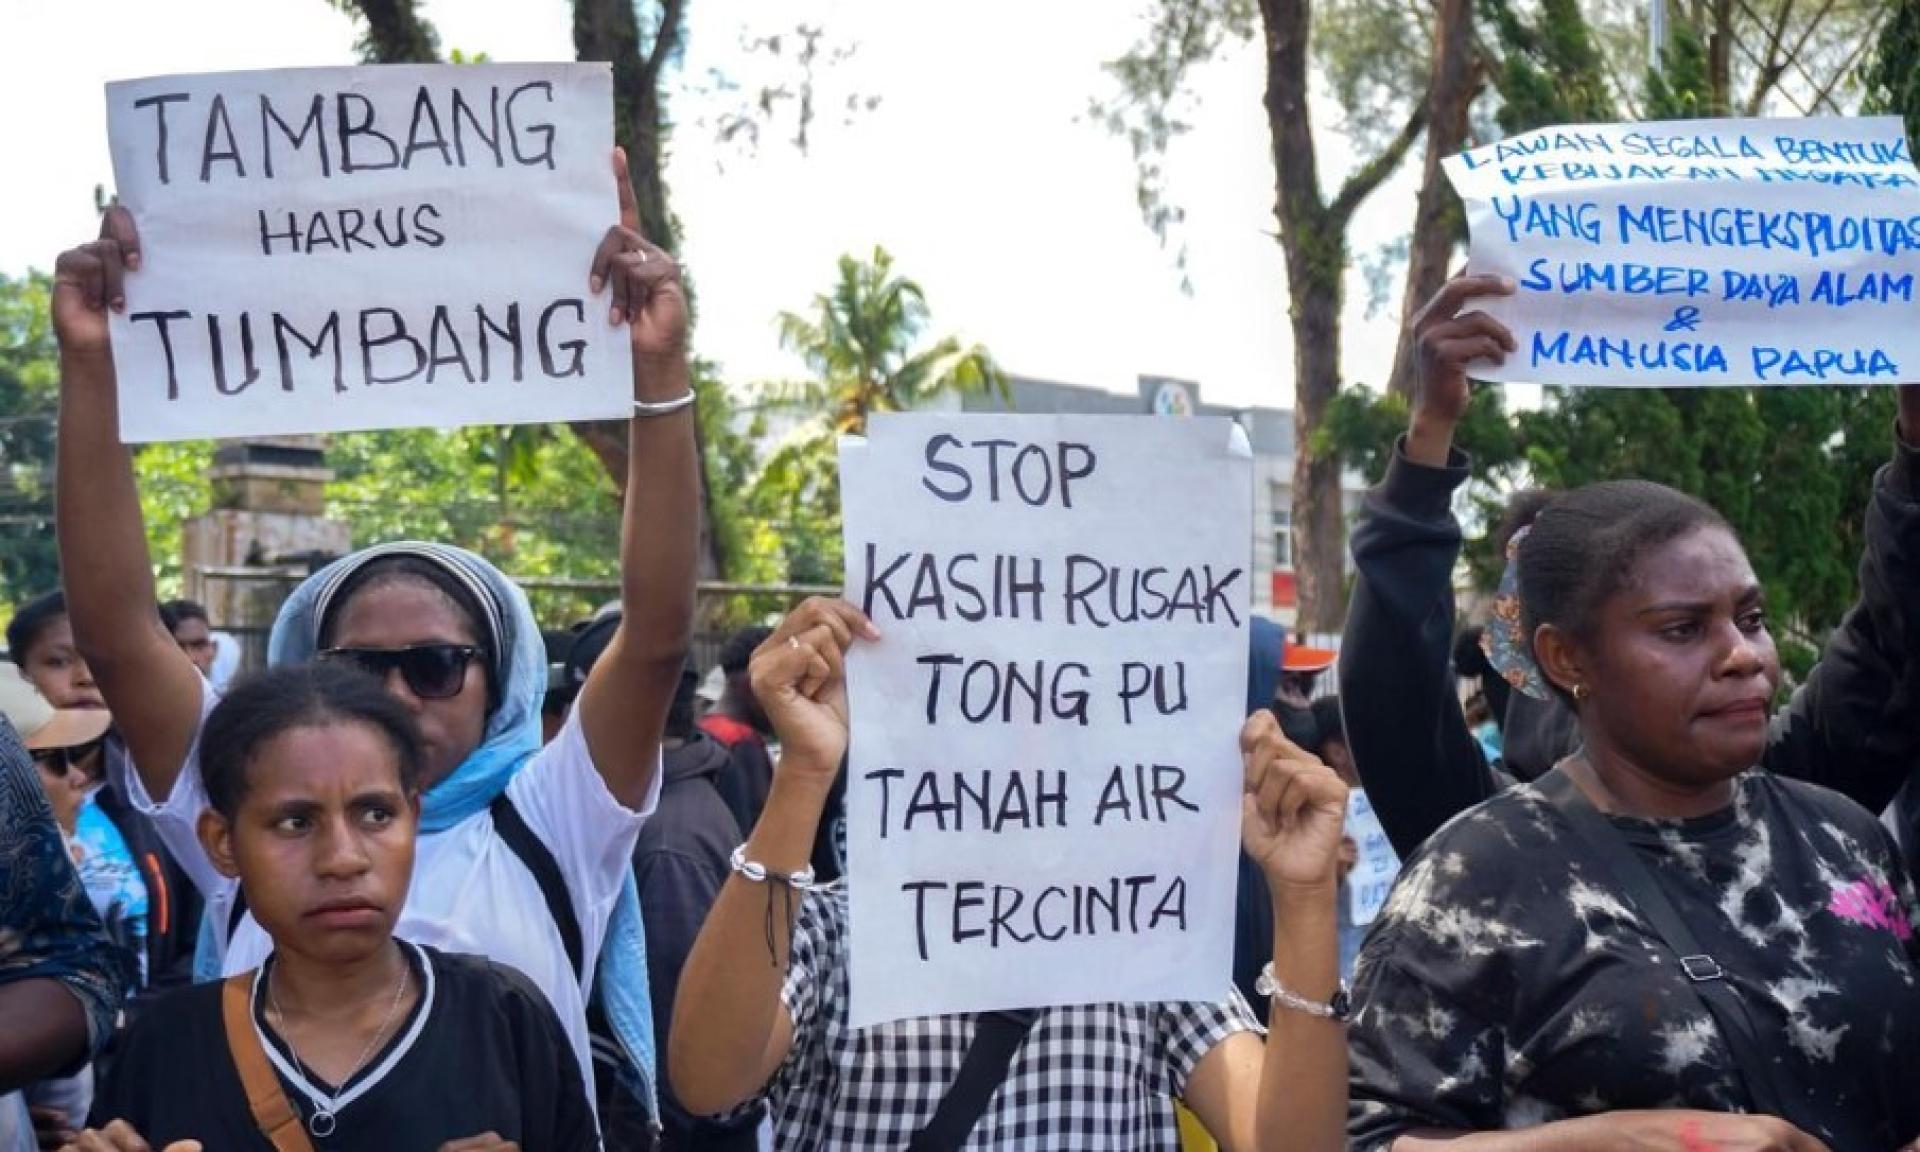 TAMBANG
HARUS
TUMBANG
STOP
KASIH RUSAK
TONG PU
TANAH AIR
TERCINTA
LAWAN SEGALA BENTUK
KEBIJAKAN NEGARA
YANG MENGEKSPLOITAS
SUMBER DAYA ALAM
&
MANUSIA PAPUA